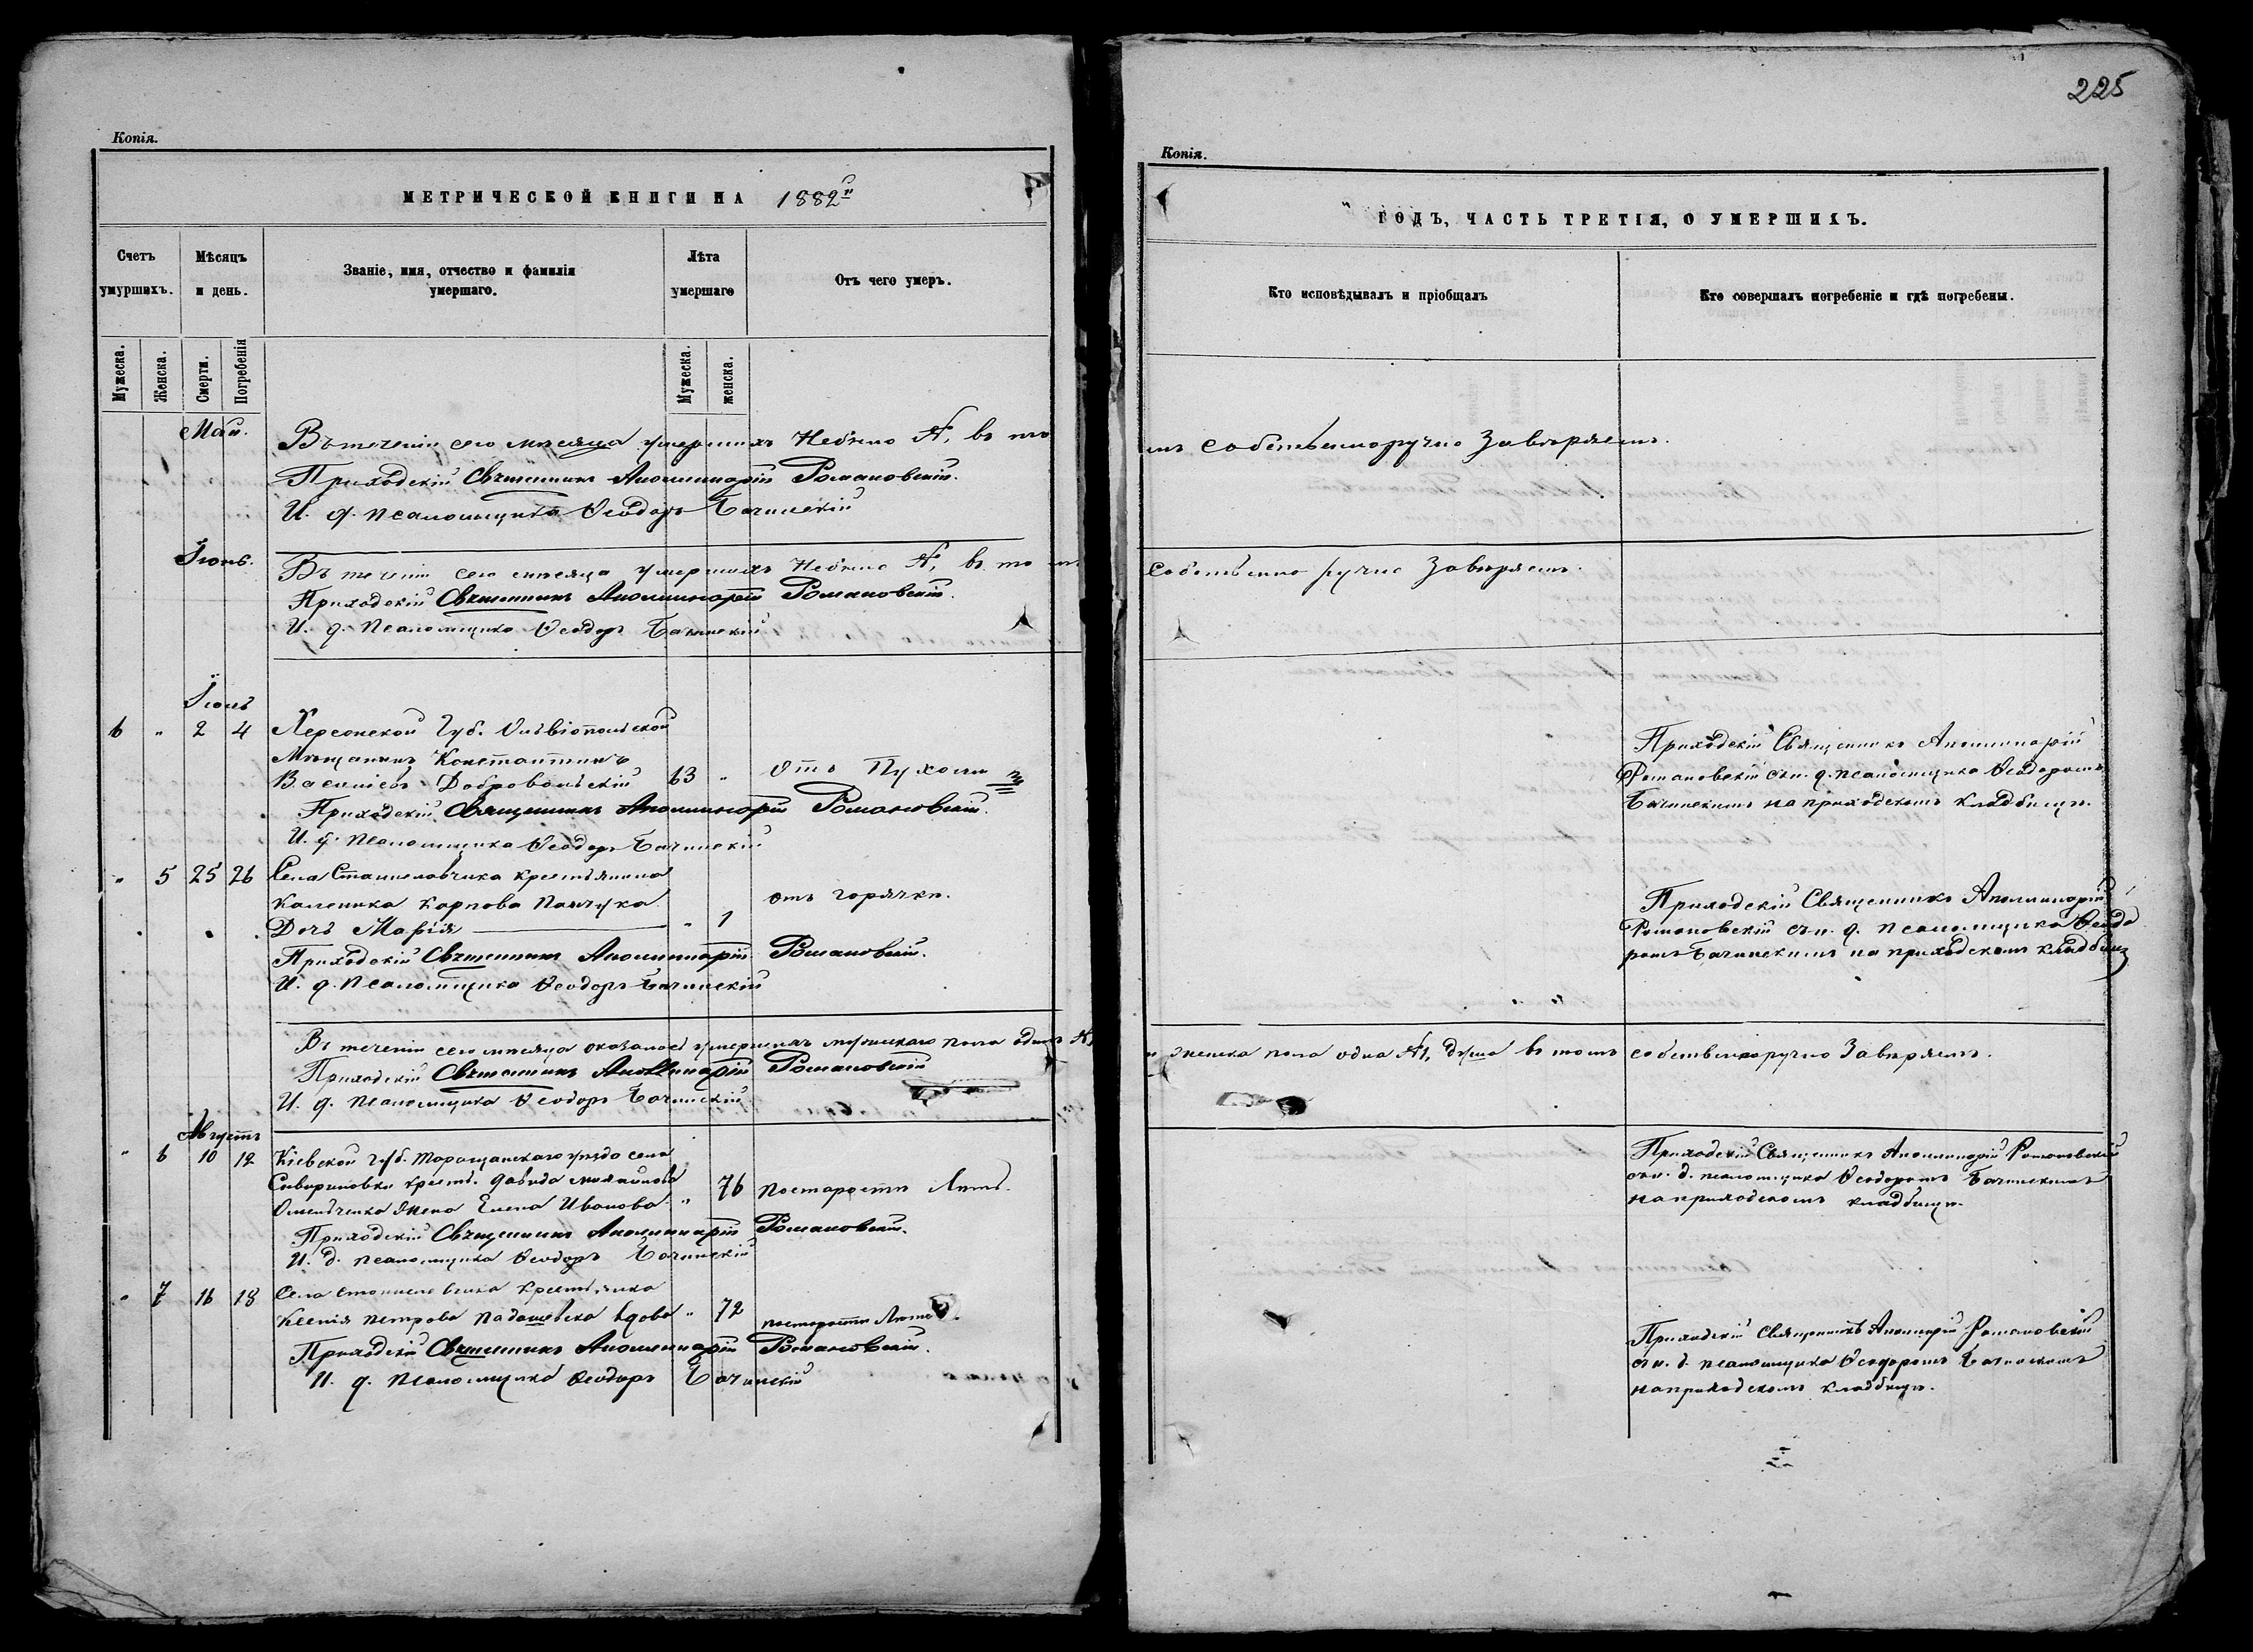 Копія.
МЕТРИЧЕСКОЙ КНИГИ НА 1882й
Счетъ умуршихъ.
Мѣсяцъ и день.
Званіе, имя, отчество и фамилія умершаго.
Лѣта умершаго
Отъ чего умеръ.
Мужеска.
Женска.
Смерти.
Погребенія
Мужеска.
женска.
Май.
Въ теченіи сего мѣсяца умершихъ Небыло
Приходскій Священникъ Аполлинарій Романовскій.
И. д. псаломщика Ѳеодоръ Бачинскій
Іюнь.
Въ теченіи сего мѣсяца умершихъ Небыло
Приходскій Священникъ Аполлинарій Романовскій.
И. д. псаломщика Ѳеодоръ Бачинскій
Іюль
6 " 2 4 Херсонской Губ. Ольвіопольской
Мѣщанинъ Константинъ
Василіевъ Добровольскій 63 " Отъ Пухоты
Приходскій Священникъ Аполлинарій Романовскій.
И. д. псаломщика Ѳеодоръ Бачинскій
" 5 25 26 Села Станиславчика крестьянина
Каленика Карпова
Дочь Марія " 1 отъ горячки.
Приходскій Священникъ Аполлинарій Романовскій.
И. д. псаломщика Ѳеодоръ Бачинскій
Въ теченіи сего мѣсяца оказалось умершихъ мужескаго пола одинъ
Приходскій Священникъ Аполлинарій Романовскій
И. д. псаломщика Ѳеодоръ Бачинскій
Августъ
" 6 10 12 Кіевской губ. Таращанскаго уѣзда села
крест. Давида
жена Елена Иванова " 76 постарости Лѣтъ.
Приходскій Священникъ Аполлинарій Романовскій.
И. д. псаломщика Ѳеодоръ Бачинскій
" 7 16 18 Села крестьянка
Ксенія Петрова вдова " 72 постарости Лѣтъ.
Приходскій Священникъ Аполлинарій Романовскій.
И. д. псаломщика Ѳеодоръ Бачинскій
225
Копія.
ГОДЪ, ЧАСТЬ ТРЕТІЯ, О УМЕРШИХЪ.
Кто исповѣдывалъ и пріобщалъ
Кто совершалъ погребеніе и гдѣ погребены.
собственноручно Завѣряемъ.
собственно ручно Завѣряемъ.
Приходскій Священникъ Аполлинарій
Романовскій съ и. д. псаломщика Ѳеодоромъ
Бачинскимъ на приходскомъ кладбищѣ.
Приходскій Священникъ Аполлинарій
Романовскій съ и. д. псаломщика Ѳеодо
ромъ Бачинскимъ на приходскомъ кладбищѣ
и женска пола одна №1, душа въ томъ собственноручно Завѣряемъ.
Приходскій Священникъ Аполлинарій Романовскій
съ и. д. псаломщика Ѳеодоромъ Бачинскимъ
на приходскомъ кладбищѣ.
Приходскій Священникъ Аполинарій Романовскій
съ и. д. псаломщика Ѳеодоромъ Бачинскимъ
на приходскомъ кладбищѣ.